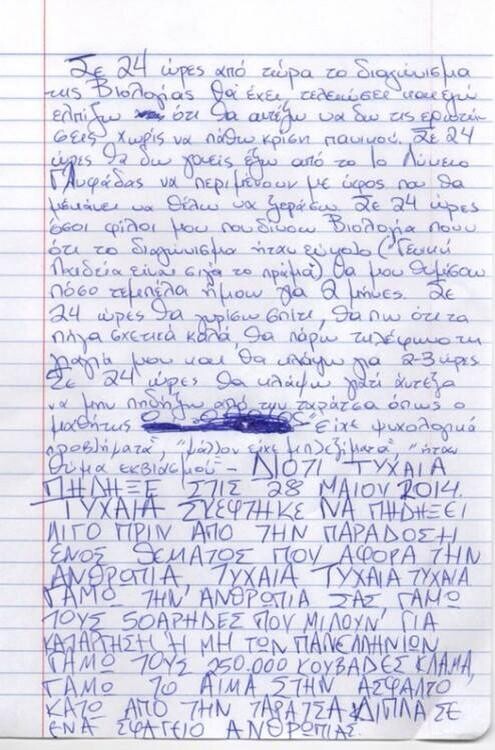 Σε 24 ώρες από τώρα το διαγώνισμα
της Βιολογίας θα έχει τελειώσει και εγώ
ελπίζω ότι θα αντέξω να δω τις ερωτή-
σεις χωρίς να πάθω κρίση πανικού. Σε 24
ώρες θα δω γονείς έξω από το 1ο Λύκειο
Γλυφάδας να περιμένουν με ύφος που θα
με κάνει να θέλω να ξεράσω. Σε 24 ώρες
όσοι φίλοι μου που δίνουν Βιολογία πουν
ότι το διαγώνισμα ήταν εύκολο ("Γενική
Παιδεία είναι σιγά το πράμα) θα μου θυμίσουν
πόσο τεμπέλα ήμουν για 2 μήνες. Σε
24 ώρες θα γυρίσω σπίτι, θα πω ότι τα
πήγα σχετικά καλά, θα πάρω τηλέφωνο τη
γιαγιά μου και θα κλάψω για 2-3 ώρες
Σε 24 ώρες θα κλάψω γιατί άντεξα
να μην πηδήξω από την ταράτσα όπως ο
μαθητής "Είχε ψυχολογικά
προβλήματα", "μάλλον είχε μπλεξίματα", "ήταν
θύμα εκβιασμού" - ΔΙΟΤΙ ΤΥΧΑΙΑ
ΠΗΔΗΞΕ ΣΤΙΣ 28 ΜΑΙΟΥ 2014.
ΤΥΧΑΙΑ ΣΚΕΦΤΗΚΕ ΝΑ ΠΗΔΗΞΕΙ
ΛΙΓΟ ΠΡΙΝ ΑΠΟ ΤΗΝ ΠΑΡΑΔΟΣΗ
ΕΝΟΣ ΘΕΜΑΤΟΣ ΠΟΥ ΑΦΟΡΑ ΤΗΝ
ΑΝΘΡΩΠΙΑ. ΤΥΧΑΙΑ ΤΥΧΑΙΑ ΤΥΧΑΙΑ
ΓΑΜΩ ΤΗΝ ΑΝΘΡΩΠΙΑ ΣΑΣ ΓΑΜΩ
ΤΟΥΣ 50ΑΡΗΔΕΣ ΠΟΥ ΜΙΛΟΥΝ ΓΙΑ
ΚΑΤΑΡΓΗΣΗ Ή ΜΗ ΤΩΝ ΠΑΝΕΛΛΗΝΙΩΝ
ΓΑΜΩ ΤΟΥΣ 250.000 ΚΟΥΒΑΔΕΣ ΚΛΑΜΑ,
ΓΑΜΩ ΤΟ ΑΙΜΑ ΣΤΗΝ ΑΣΦΑΛΤΟ
ΚΑΤΩ ΑΠΟ ΤΗΝ ΤΑΡΑΤΣΑ ΔΙΠΛΑ ΣΕ
ΕΝΑ ΣΦΑΓΕΙΟ ΑΝΘΡΩΠΙΑΣ.